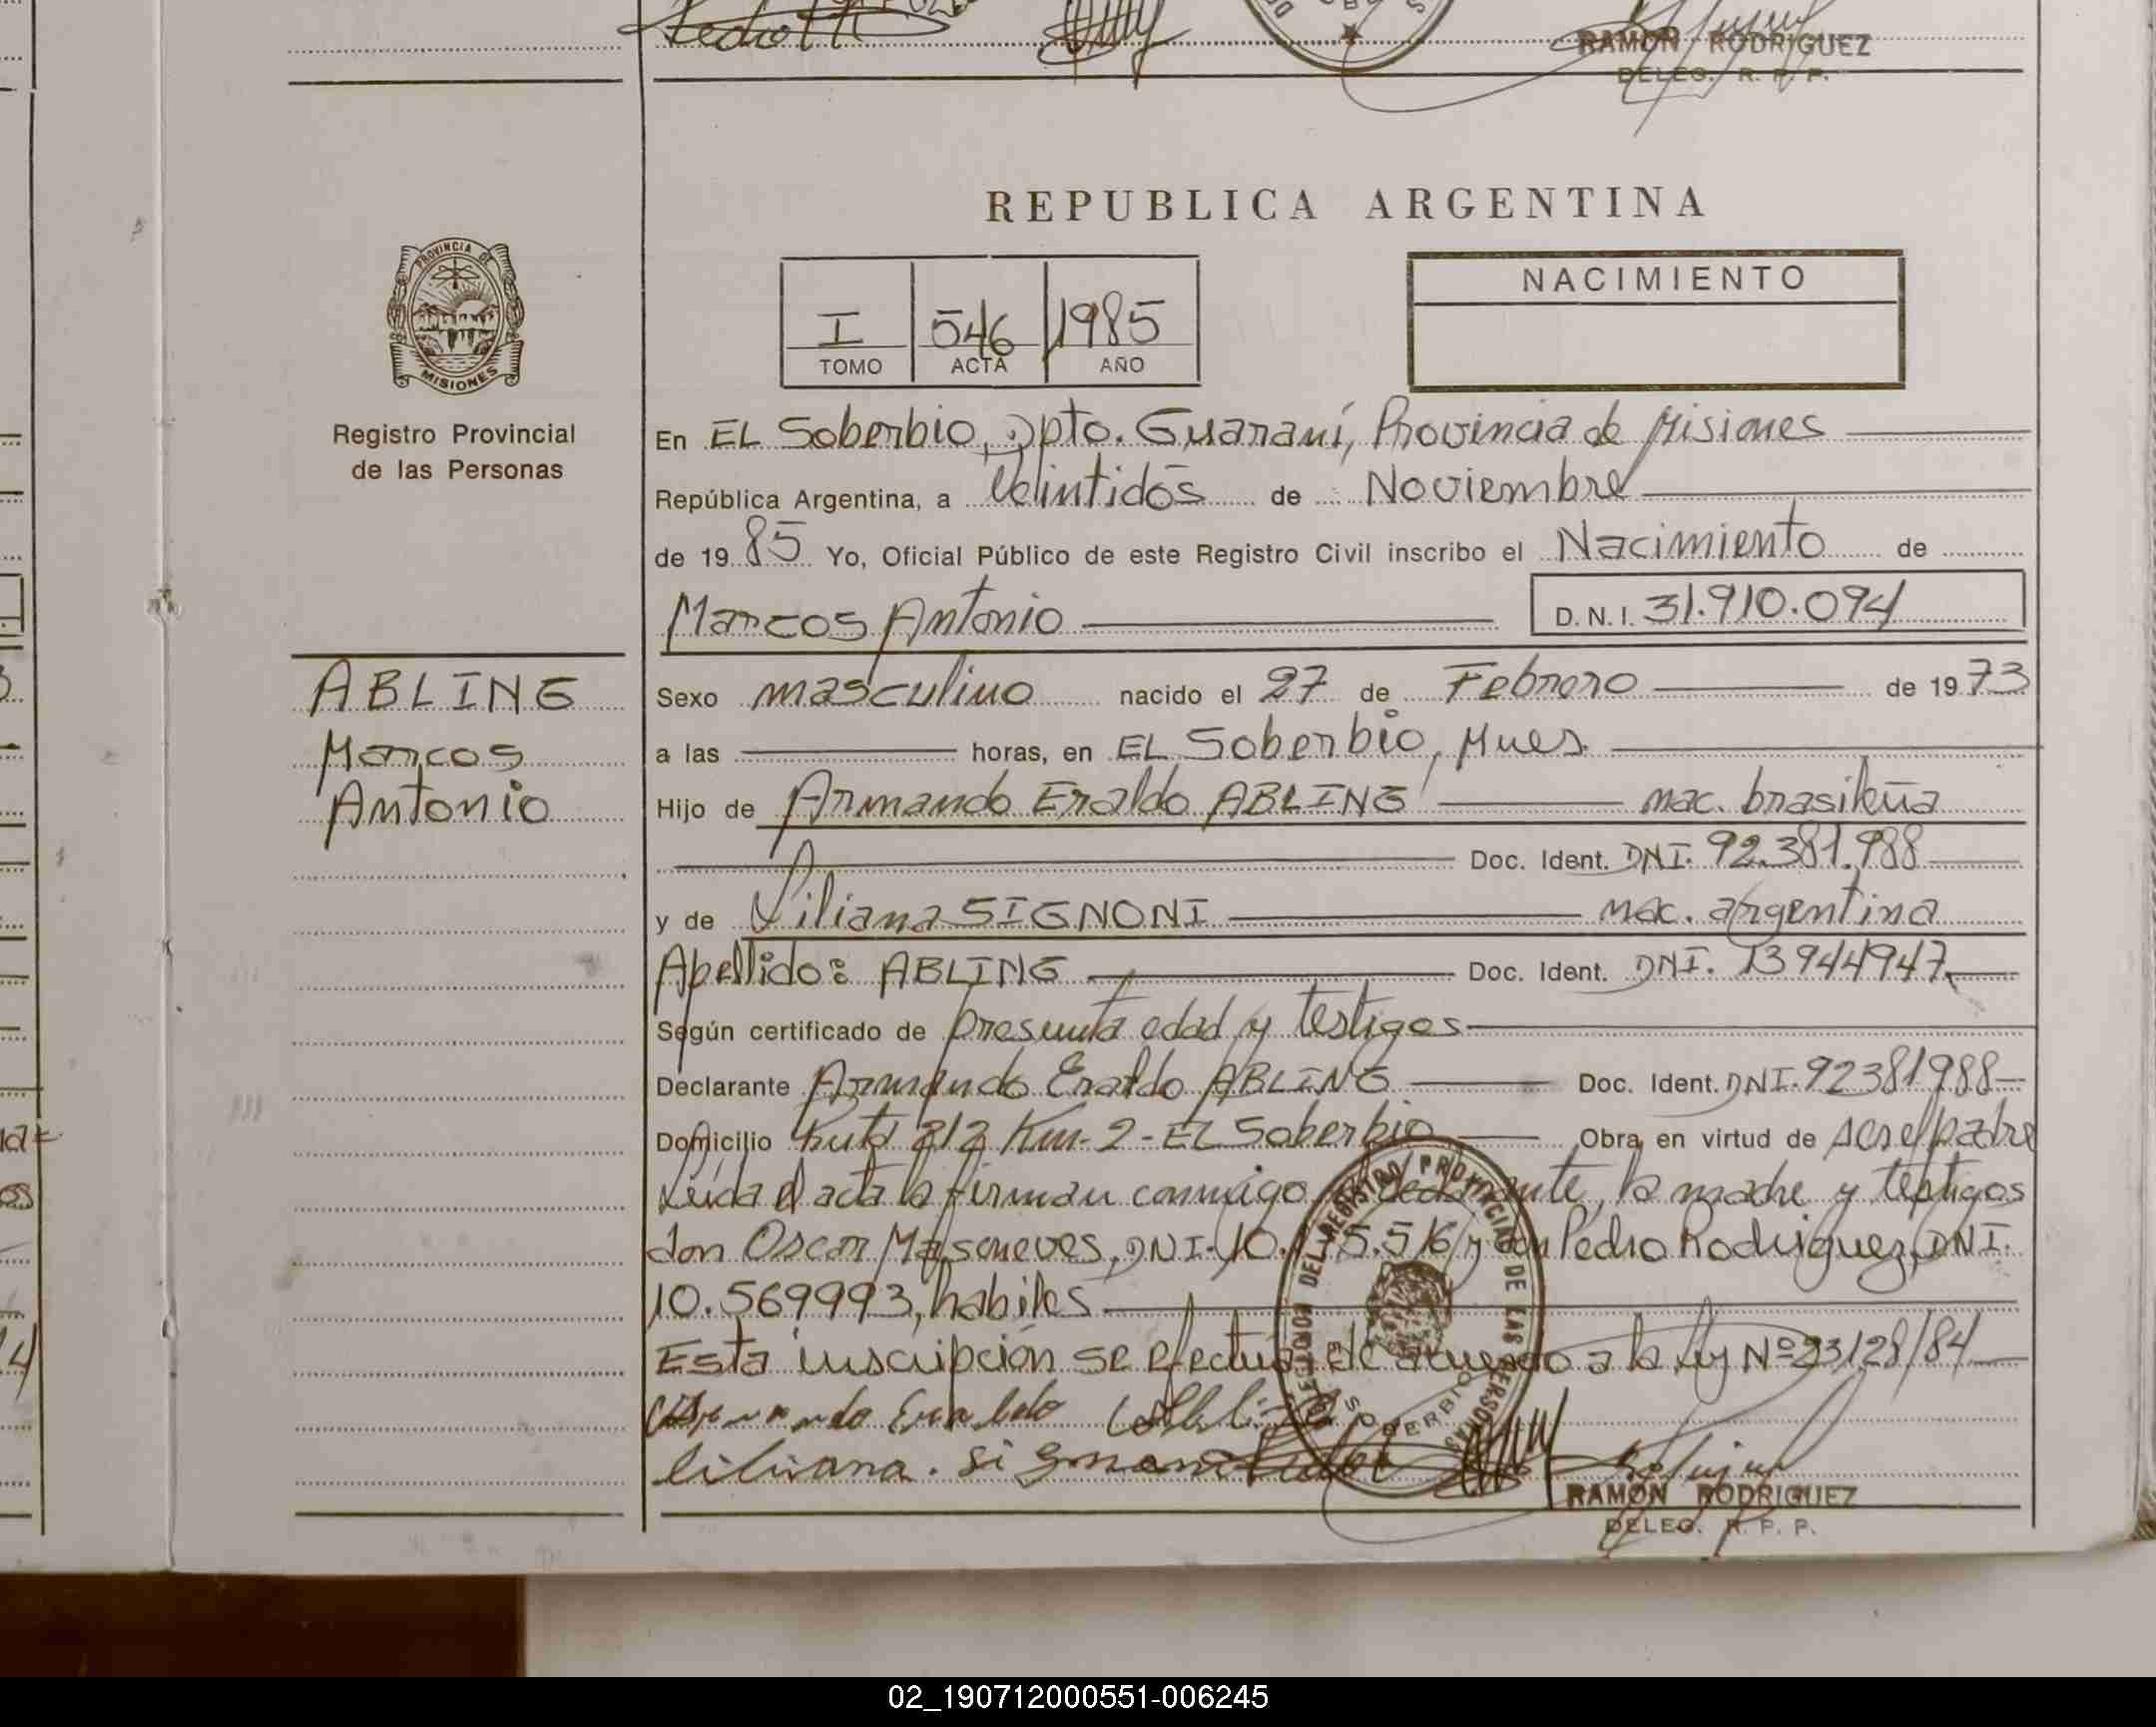 RAMON RODRIGUEZ
DELEG. R. P. P.
REPUBLICA ARGENTINA
PROVINCIA DE
MISIONES
Registro Provincial
de las Personas
I 546 1985
TOMO ACTA AÑO
NACIMIENTO
En EL Soberbio, Dpto. Guaraní, Provincia de Misiones
República Argentina, a Veintidós de Noviembre
de 19 85 Yo, Oficial Público de este Registro Civil inscribo el Nacimiento de
Marcos Antonio D.N.I. 31.910.094
ABLING
Marcos
Antonio
Sexo masculino nacido el 27 de Febrero de 19 73
a las horas, en EL Soberbio, Mnes.
Hijo de Armando Eraldo ABLING nac. brasileña
Doc. Ident. DNI. 92.381.988
y de Liliana SIGNONI nac. argentina
Apellido: ABLING Doc. Ident. DNI. 13944947
Según certificado de presunta edad y testigos
Declarante Armando Eraldo ABLING Doc. Ident. DNI. 92381988
Domicilio Ruta 212 Km-2- EL Soberbio Obra en virtud de ser el padre
Leída el acta la firman conmigo el declarante, la madre y testigos
don Oscar Masoneves, DNI- 10. 5.516 y don Pedro Rodriguez, DNI.
10.569993, habiles
Esta inscripción se efectúa de acuerdo a la Ley Nº 23128/84
Armando Eraldo Abling
liliana. signoni
DELEGACION DEL REGISTRO PROVINCIAL DE LAS PERSONAS
SOBERBIO
RAMON RODRIGUEZ
DELEG. R. P. P.
02_190712000551-006245